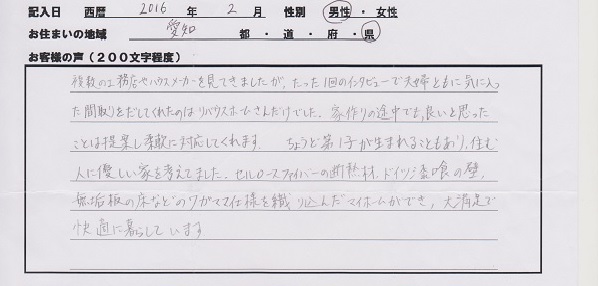 記入日 西暦 2016 年 2 月 性別 男性・女性
お住まいの地域 愛知 都・道・府・県
お客様の声(200文字程度)
複数の工務店やハウスメーカーを見てきましたが、たった1回のインタビューで夫婦ともに気に入っ
た間取りをだしてくれたのはリバウスホームさんだけでした。家作りの途中でも、良いと思った
ことは提案し柔軟に対応してくれます。 ちょうど第1子が生まれることもあり、住む
人に優しい家を考えてました。セルロースファイバーの断熱材、ドイツ漆喰の壁、
無垢板の床などのワガママ仕様を織り込んだマイホームができ、大満足で
快適に暮らしています